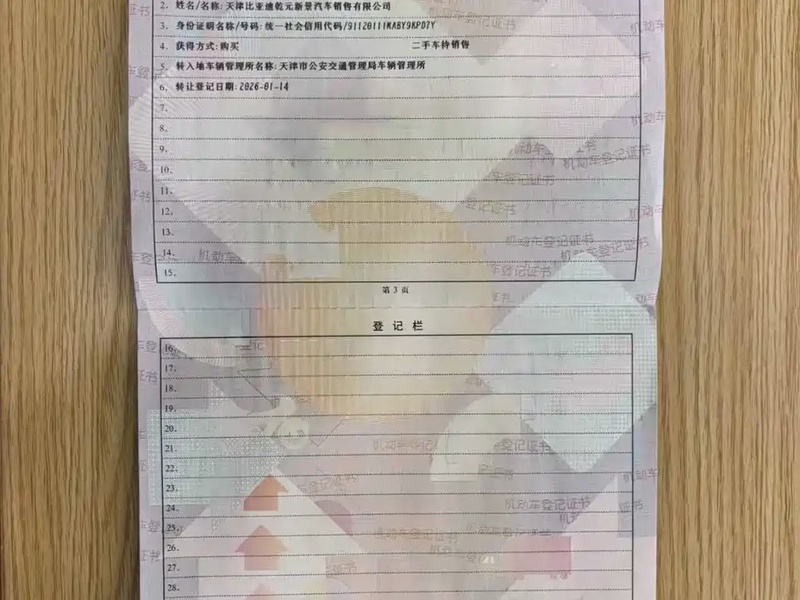 2. 姓名/名称: 天津比亚迪乾元新景汽车销售有限公司
3. 身份证明名称/号码: 统一社会信用代码/91120111MABY9KPD7Y
4. 获得方式: 购买 二手车待销售
5. 转入地车辆管理所名称: 天津市公安交通管理局车辆管理所
6. 转让登记日期: 2026-01-14
7.
8.
9.
10.
11.
12.
13.
14.
15.
第 3 页
登 记 栏
16.
17.
18.
19.
20.
21.
22.
23.
24.
25.
26.
27.
28.
机动车登记证书